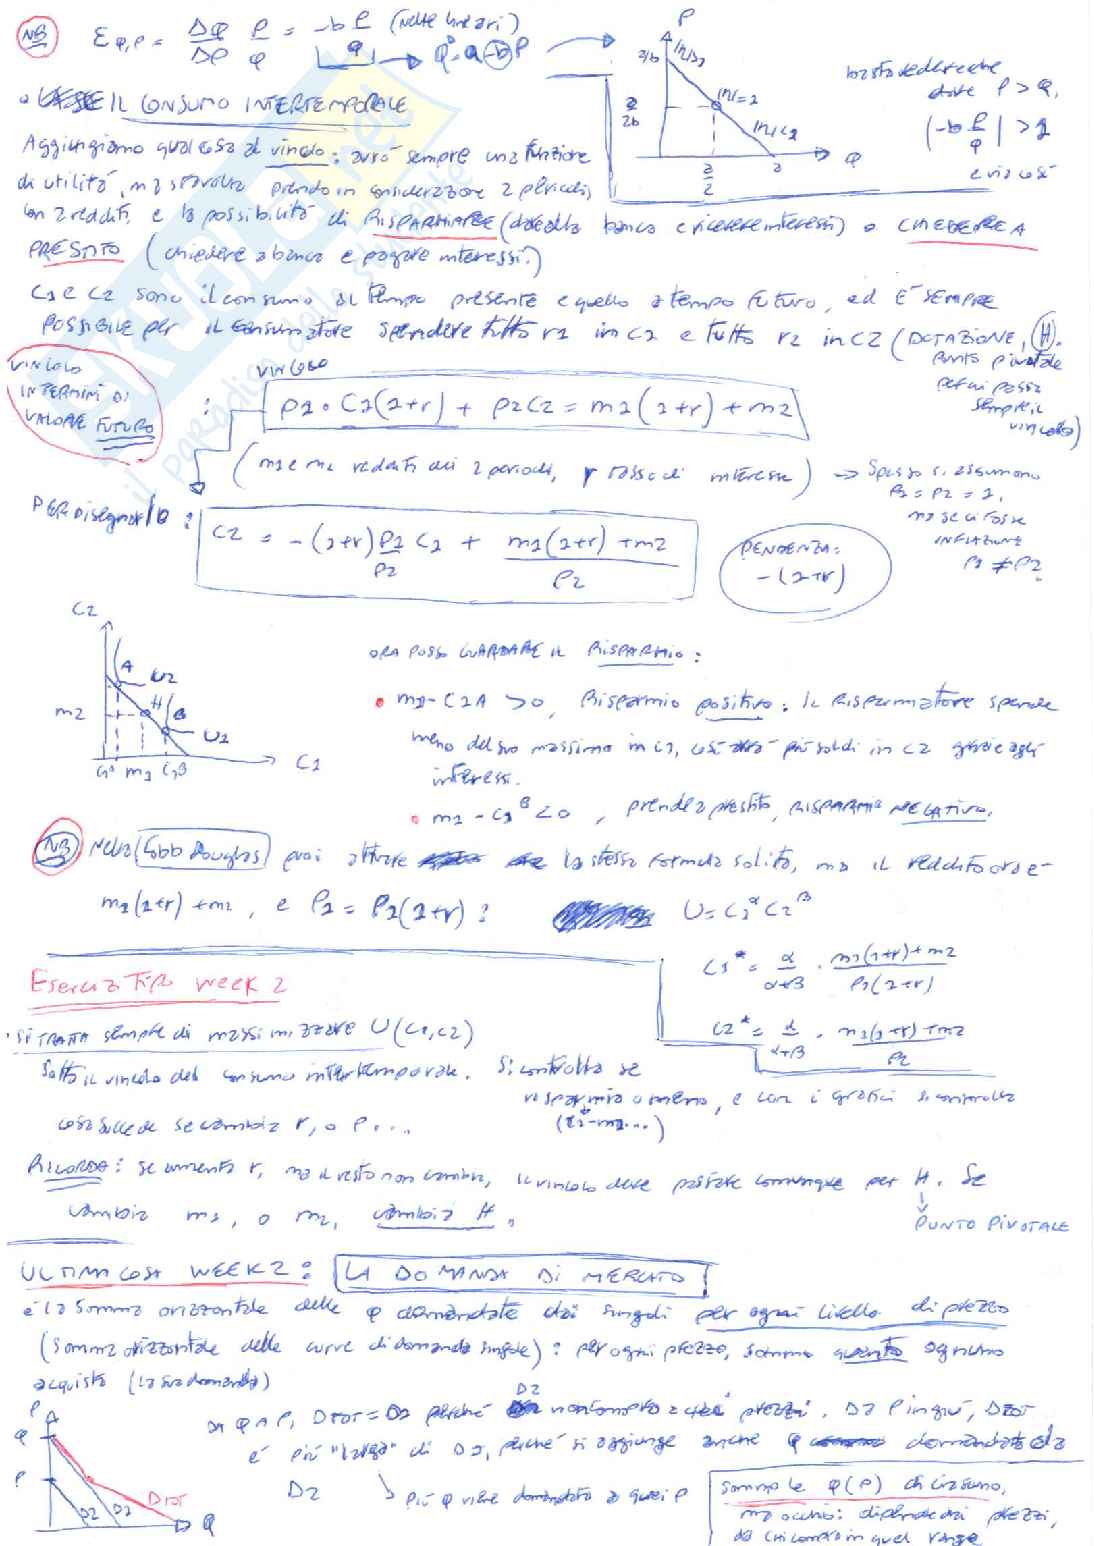 NB E Q,P = ΔQ/ΔP P/Q = -b P/Q (nelle lineari)
Q = a - b P
P
a/b
|n|>1
a/2b
|n|=1
|n|<1
a/2
a
Q
basta vedere che
dove P > Q,
|-b P/Q| > 1
e via così
IL CONSUMO INTERTEMPORALE
Aggiungiamo qualcosa al vincolo: avrò sempre una funzione
di utilità, ma stavolta prendo in considerazione 2 periodi,
con 2 redditi, e la possibilità di RISPARMIARE (dare alla banca e ricevere interessi) o CHIEDERE A
PRESTITO (chiedere a banca e pagare interessi.)
C1 e C2 sono il consumo al tempo presente e quello a tempo futuro, ed E' SEMPRE
POSSIBILE per il consumatore spendere tutto r1 in C1 e tutto r2 in C2 (DOTAZIONE, H.
punto pivotale
per cui passa
sempre il
vincolo)
VINCOLO
IN TERMINI DI
VALORE FUTURO
:
VINCOLO
P1 · C1(1+r) + P2C2 = m1(1+r) + m2
(m1 e m2 redditi dei 2 periodi, r tasso di interesse) → Spesso si assumono
P1 = P2 = 1,
ma se ci fosse
INFLAZIONE
P1 ≠ P2.
PER disegnarlo :
C2 = -(1+r) P1/P2 C1 + m1(1+r)+m2 / P2
PENDENZA:
-(1+r)
C2
A
U2
H
B
U1
m2
C1A m1 C1B
C1
ORA POSSO GUARDARE IL RISPARMIO:
m1-C1A >0, Risparmio positivo: il Risparmiatore spende
meno del suo massimo in C1, così avrà più soldi in C2 grazie agli
interessi.
m1 - C1B <0, prende a prestito, RISPARMIO NEGATIVO.
NB Nella Cobb Douglas puoi attuare la stessa formula solita, ma il reddito ora è
m1(1+r)+m2, e P1 = P1(1+r) : U = C1^α C2^β
C1* = α/α+β · m1(1+r)+m2 / P1(1+r)
C2* = α/α+β · m1(1+r)+m2 / P2
Esercizi Tipo WEEK 2
SI TRATTA sempre di massimizzare U(C1,C2)
sotto il vincolo del consumo intertemporale. Si controlla se
risparmia o meno, e con i grafici si controlla
(C1-m1...)
cosa succede se cambia r, o P...
RICORDA: se aumenta r, ma il resto non cambia, il vincolo deve passare comunque per H. Se
cambia m1, o m2, cambia H.
PUNTO PIVOTALE
ULTIMA COSA WEEK 2: LA DOMANDA DI MERCATO
è la somma orizzontale delle Q domandate dai singoli per ogni livello di prezzo
(somma orizzontale delle curve di domanda singole): per ogni prezzo, sommo quanto ognuno
acquista (la sua domanda)
P
Q
P
D2 D1 DTOT
Q
DA Q A P, DTOT = D1 perché D2 non compra a quei prezzi. Da P in giù, DTOT
è più "larga" di D1, perché si aggiunge anche Q domandata da
D2
più Q viene domandata a quei P
Sommo le Q(P) di ciascuno,
ma occhio: dipende dai prezzi,
da chi compra in quel range